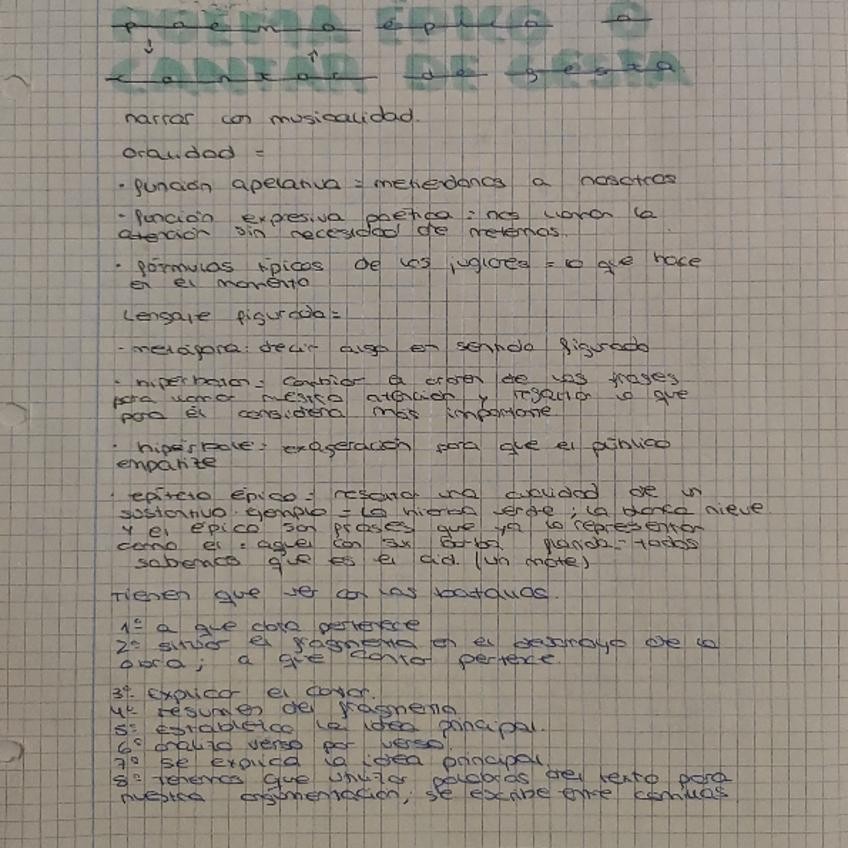 poema épico o
cantar de gesta
narrar con musicalidad.
oralidad =
· función apelativa = metiendonos a nosotros
· función expresiva poética : nos llaman la
atención sin necesidad de meternos.
· fórmulas típicas de los juglares = lo que hace
en el momento
Lengaje figurado =
- metáfora: decir algo en sentido figurado
· hiperbaton = cambiar el orden de las frases
para llamar nuestra atención y lo que
para él considera más importante
· hipérbole = exageración para que el público
empatize
· epíteto épico = una cualidad de un
sustantivo. ejemplo = la hierba verde ; la blanca nieve
y el épico son frases que ya lo representan
como el = aquel con su barba = todos
sabemos que es el cid. (un mote)
Tienen que ver con las batallas.
1º a que obra pertenece
2º situar el fragmento en el de la
obra ; a que cantar
3º explico el cantar.
4º resumen del fragmento
5º la idea principal.
6º analizo verso por verso.
7º se explica la idea principal
8º tenemos que utilizar palabras del texto para
nuestra argumentación; se escribe entre comillas